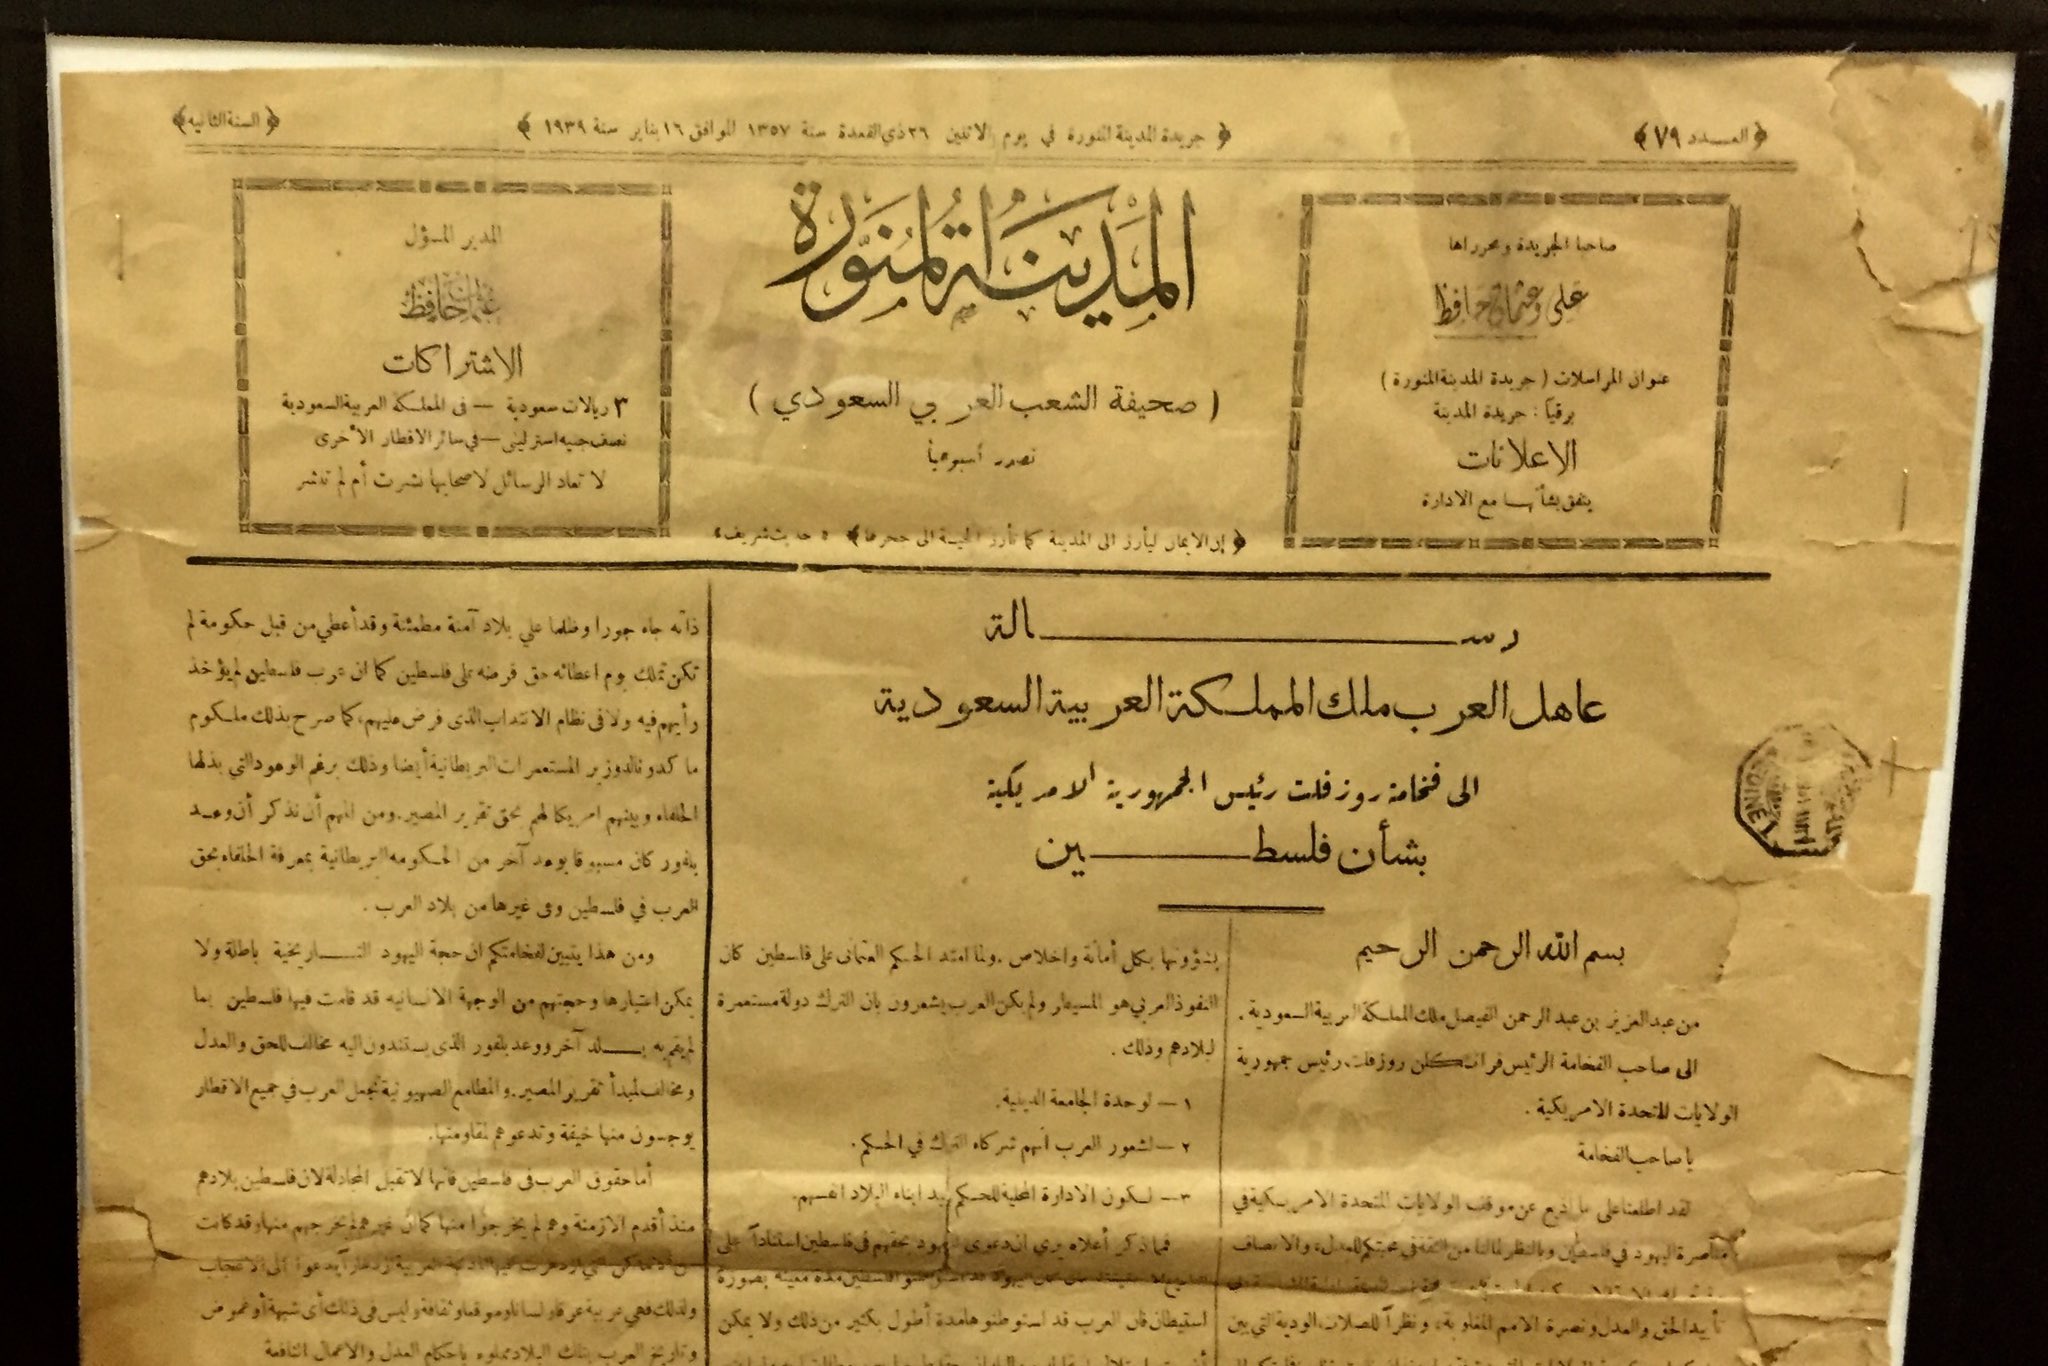 ﴿ العـــدد ٧٩ ﴾
﴿ جريدة المدينة المنورة في يوم الاثنين ٢٦ ذي القعدة سنة ١٣٥٧ الموافق ١٦ يناير سنة ١٩٣٩ ﴾
﴿ السنة الثانيه ﴾
صاحبا الجريدة ومحرراها
علي وعثمان حافظ
عنوان المراسلات ( جريدة المدينة المنورة )
برقياً : جريدة المدينة
الاعلانات
يتفق بشأنها مع الادارة
المدينة المنورة
( صحيفة الشعب العربي السعودي )
تصدر أسبوعياً
﴿ إن الايمان ليأرز الى المدينة كما تأرز الحية الى جحرها ﴾ « حديث شريف »
المدير المسؤل
عثمان حافظ
الاشتراكات
٣ ريالات سعودية — فى المملكة العربية السعودية
نصف جنيه استرلينى — في سائر الاقطار الأخرى
لا تعاد الرسائل لاصحابها نشرت أم لم تنشر
رســـالة
عاهل العرب ملك المملكة العربية السعودية
الى فخامة روزفلت رئيس الجمهورية الامريكية
بشأن فلسطــــين
بسم الله الرحمن الرحيم
من عبد العزيز بن عبد الرحمن الفيصل ملك المملكة العربية السعودية .
الى صاحب الفخامة الرئيس فرانكلن روزفلت رئيس جمهورية
الولايات المتحدة الامريكية .
يا صاحب الفخامة
لقد اطلعنا على ما اذيع عن موقف الولايات المتحدة الامريكية في
مناصرة اليهود في فلسطين وبالنظر لمالنا من الثقة في محبتكم للعدل والانصاف
تأييد الحق والعدل ونصرة الامم المغلوبة، ونظراً للصلات الودية التي بين
بشؤونها بكل أمانة واخلاص . ولما امتد الحكم العثمانى على فلسطين كان
النفوذ العربي هو المسيطر ولم يكن العرب يشعرون بان الترك دولة مستعمرة
لبلادهم وذلك .
١ — لوحدة الجامعة الدينية .
٢ — لشعور العرب أنهم شركاء الترك في الحكم .
٣ — لكون الادارة المحلية للحكم بيد ابناء البلاد انفسهم .
فما ذكر أعلاه يرى ان دعوى اليهود بحقهم فى فلسطين استناداً على
استيطان فان العرب قد استوطنوها مدة أطول بكثير من ذلك ولا يمكن
ذاته جاء جورا وظلما علي بلاد آمنة مطمئنة وقد أعطي من قبل حكومة لم
تكن تملك يوم اعطائه حق فرضه على فلسطين كما ان عرب فلسطين لم يؤخذ
رأيهم فيه ولا فى نظام الانتداب الذى فرض عليهم، كما صرح بذلك ملكوم
ما كدونالد وزير المستعمرات البريطانية أيضا وذلك برغم الوعود التي بذلها
الحلفاء وبينهم امريكا لهم بحق تقرير المصير . ومن المهم أن نذكر أن وعــد
بلفور كان مسبوقا بوعد آخر من الحكومه البريطانية بمعرفة الحلفاء بحق
العرب في فلسطين وفى غيرها من بلاد العرب .
ومن هذا يتبين لفخامتكم ان حجة اليهود التـــاريخية باطلة ولا
يمكن اعتبارها وحجتهم من الوجهة الانسانيه قد قامت فيها فلسطين بما
لم يقم به بــــلد آخر ووعد بلفور الذى يستندون اليه مخالف للحق والعدل
ومخالف لمبدأ تقرير المصير . والمطامع الصهيونية تجعل العرب في جميع الاقطار
يوجسون منها خيفة وتدعوهم لمقاومتها .
أما حقوق العرب فى فلسطين فانها لا تقبل المجادلة لان فلسطين بلادهم
منذ أقدم الازمنة وهم لم يخرجوا منها كما ان غيرهم لم يخرجهم منها وقد كانت
من الاماكن التي ازدهرت فيها المدنية العربية ازدهاراً يدعوا الى الاعجاب
ولذلك فهي عربية عرقا ولسانا وموقعا وثقافة وليس فى ذلك أى شبهة أو غموض
وتاريخ العرب بتلك البلاد مملوء باحكام العدل والاعمال النافعة